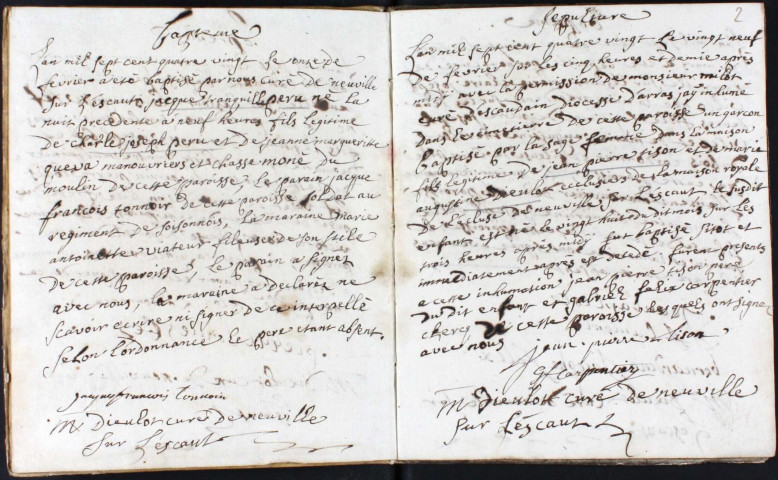 Bapteme
L'an mil sept cent quatre vingt le onze de
fevrier a été baptisé par nous curé de neuville
sur L'escaut jacque tranquille peru né la
nuit precedente a neuf heures fils legitime
de charle joseph peru et de jeanne margueritte
queva manouvriers et chasse mone du
moulin de cette paroisse, le parain jacque
francois tonnoir de cette paroisse soldat au
regiment de soisonnois, la maraine marie
antoinette viateur fileuse de son stile
de cette paroisse, le parain a signez
avec nous, la maraine a declarez ne
scavoir ecrire ni signer de ce interpellé
selon l'ordonnance le pere etant absent.
jacque francois tonnoir
M Dieulot curé de neuville
sur Lescaut
Sepulture
2
L'an mil sept cent quatre vingt le vingt neuf
de fevrier les cinq heures et demie après
midy avec la permission de monsieur milot
curé d'escaudain Diocesse d'arras jay inhumé
dans le cimetiere de cette paroisse un garcon
baptisé par la sage femme dans la maison
fils legitime de jean pierre tison et de marie
augustine Dieulot ecclusiers de la maison royale
de L'ecluse de neuville sur L'escaut le susdit
enfant est né le vingt huit dudit mois sur les
trois heures après midy fut baptisé sitot et
immediatement après est decedé furent presents
a cette inhumation jean pierre tison pere
dudit enfant et gabriel felix carpentier
clercq de cette paroisse lesquels ont signé
avec nous
jean pierre tison
Gf Carpentier
M Dieulot curé de neuville
sur Lescaut